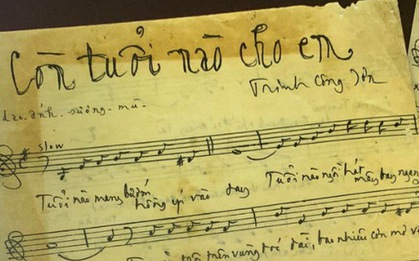 Còn tuổi nào cho em
Trịnh Công Sơn
dao. ánh. sương. mù.
slow
Tuổi nào mang buồn
hồng ý vào day
Tuổi nào ngồi hát mây bay ngang
trên vùng tóc dài, bao nhiêu